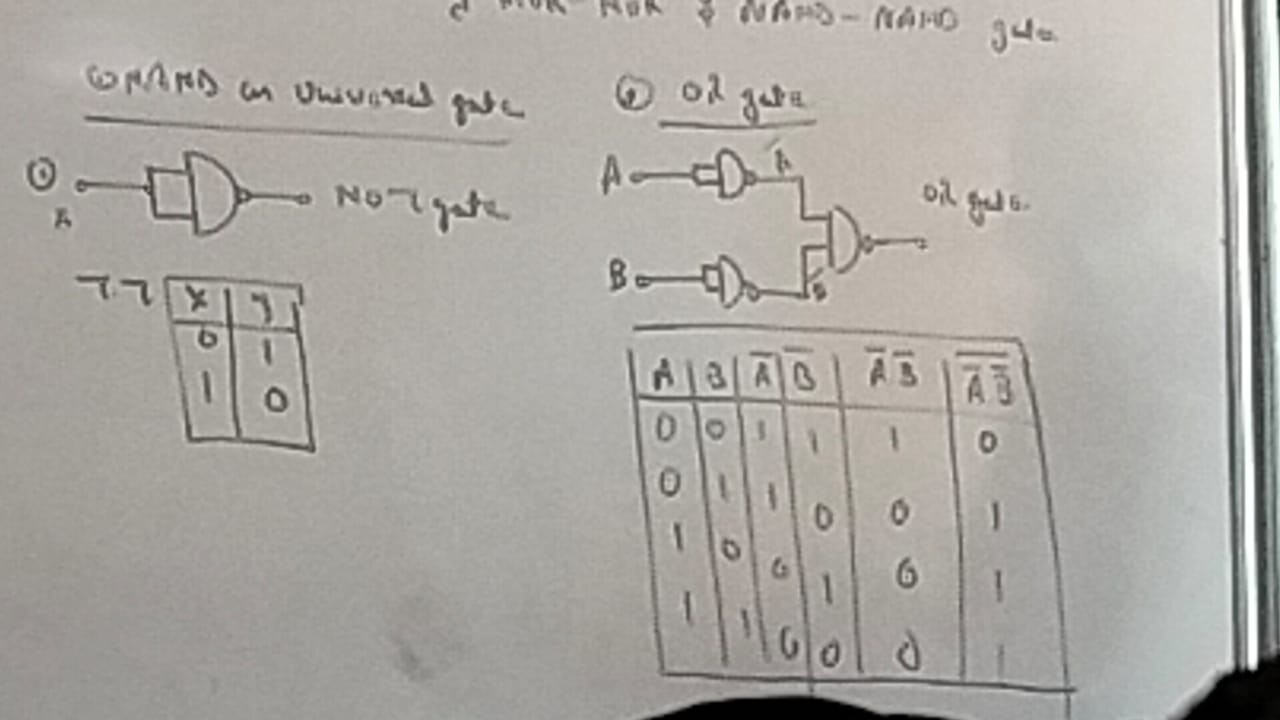 & NAND-NAND gate
NAND as Universal gate
①
A
NOT gate
T.T
X Y
0 1
1 0
② OR gate
A
Ā
B
B̄
OR gate.
A B Ā B̄ Ā B̄ \overline{Ā B̄}
0 0 1 1 1 0
0 1 1 0 0 1
1 0 0 1 0 1
1 1 0 0 0 1